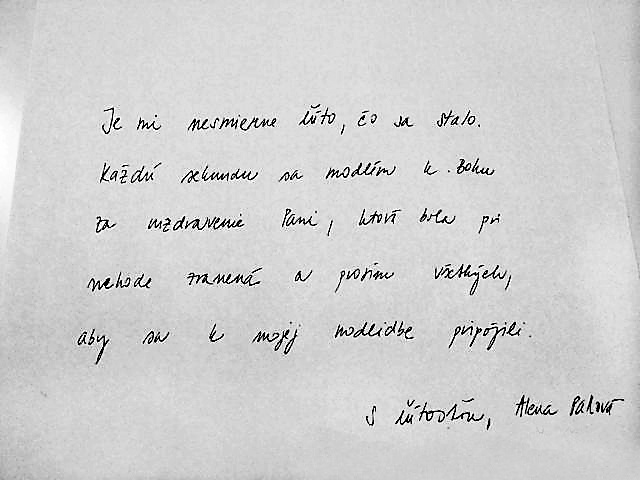 Je mi nesmierne ľúto, čo sa stalo.
Každú sekundu sa modlím k Bohu
za uzdravenie Pani, ktorá bola pri
nehode zranená a prosím všetkých,
aby sa k mojej modlidbe pripojili.
S ľútosťou, Alena Pallová